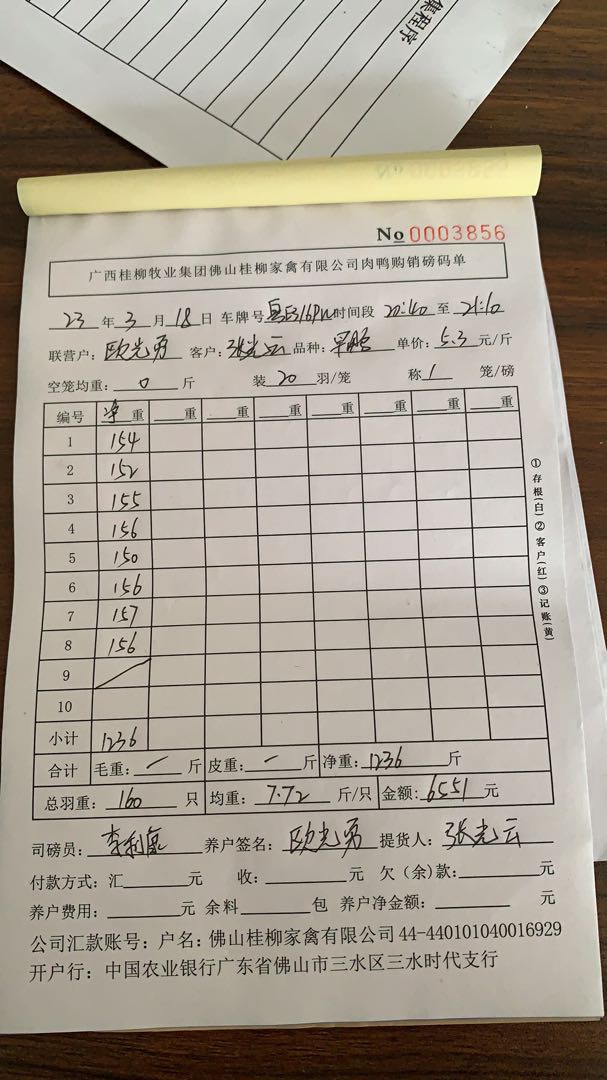 集程序
No 0003856
广西桂柳牧业集团佛山桂柳家禽有限公司肉鸭购销磅码单
23 年 3 月 18 日 车牌号 时间段 20:40 至 21:10
联营户: 欧光勇 客户: 张光云 品种: 单价: 5.3 元/斤
空笼均重: 0 斤 装 20 羽/笼 称 1 笼/磅
编号 净重 重 重 重 重 重 重 重
1 154
2 152
3 155
4 156
5 150
6 156
7 157
8 156
9
10
小计 1236
合计 毛重: — 斤 皮重: — 斤 净重: 1236 斤
总羽重: 160 只 均重: 7.72 斤/只 金额: 6551 元
司磅员: 养户签名: 欧光勇 提货人: 张光云
付款方式: 汇 元 收: 元 欠(余)款: 元
养户费用: 元 余料 包 养户净金额: 元
公司汇款账号: 户名: 佛山桂柳家禽有限公司 44-440101040016929
开户行: 中国农业银行广东省佛山市三水区三水时代支行
①存根(白)②客户(红)③记账(黄)